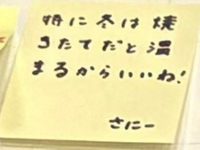 特に冬は焼
きたてだと温
まるからいいね!
さにー